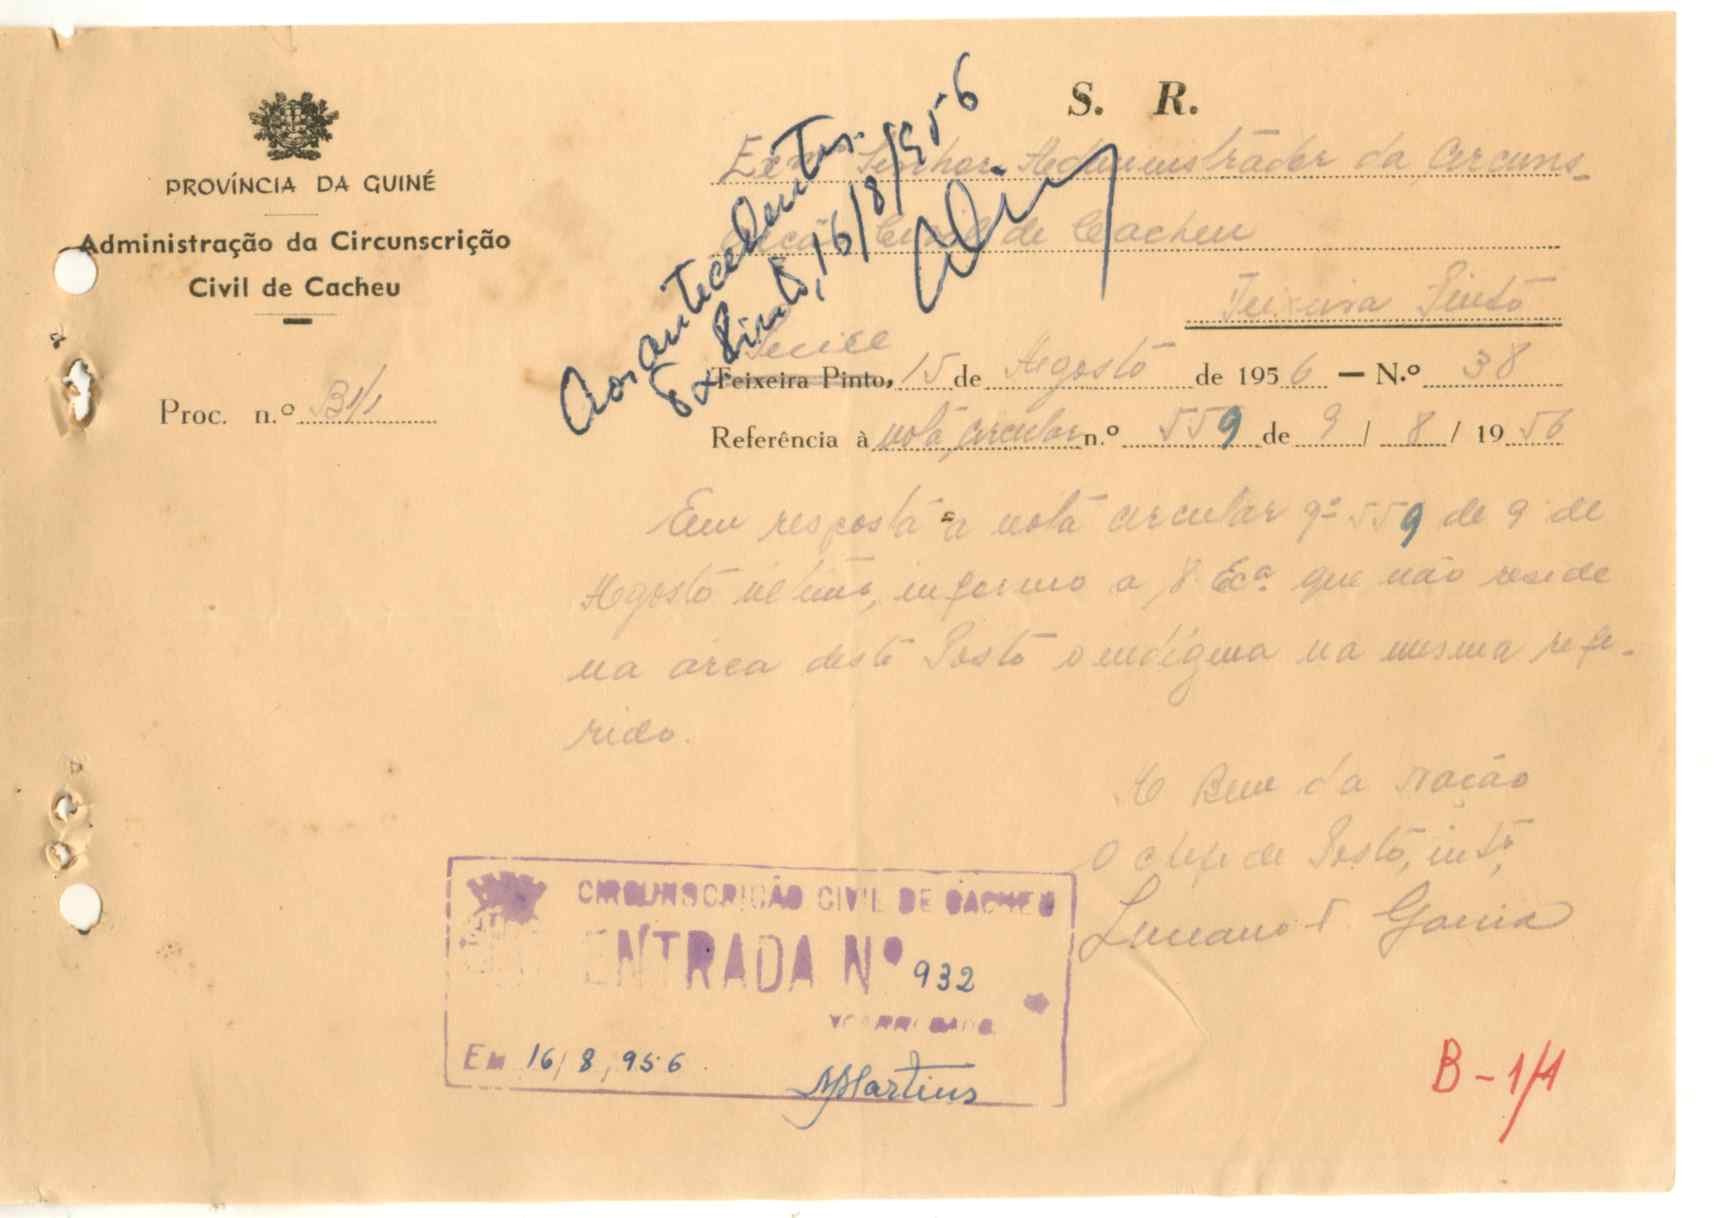 S. R.
PROVÍNCIA DA GUINÉ
Administração da Circunscrição
Civil de Cacheu
Proc. n.º B1/1
Exmo Senhor Administrador da Circuns-
crição Civil de Cacheu
Teixeira Pinto
Aos antecedentes.
Tx Pinto, 16/8/956
Teixeira Pinto, 15 de Agosto de 1956 — N.º 38
Referência à nota circular n.º 559 de 9 / 8 / 19 56
Em resposta a nota circular nº 559 de 9 de
Agosto último, informo a V. Exª. que não reside
na área deste Posto o indígena na mesma refe-
rido.
A Bem da Nação
O chefe de Posto, intº,
Luciano T. Garcia
CIRCUNSCRIÇÃO CIVIL DE CACHEU
ENTRADA Nº 932
O ENCARREGADO
Em 16/8/956.
MMartins
B-1/1